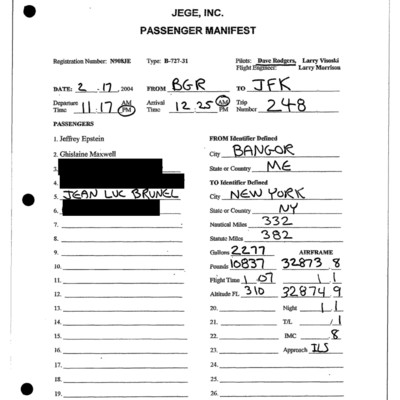 JEGE, INC.
PASSENGER MANIFEST
Registration Number: N908JE Type: B-727-31 Pilots: Dave Rodgers, Larry Visoski
Flight Engineer: Larry Morrison
DATE: 2 17 2004 FROM BGR TO JFK
Departure Time 11:17 AM PM Arrival Time 12:25 AM PM Trip Number 248
PASSENGERS FROM Identifier Defined
1. Jeffrey Epstein City BANGOR
2. Ghislaine Maxwell State or Country ME
3.
4. TO Identifier Defined
5. JEAN LUC BRUNEL City NEW YORK
6. State or Country NY
7. Nautical Miles 332
8. Statute Miles 382
9. Gallons 2277 AIRFRAME
10. Pounds 10837 32873 8
11. Flight Time 1 07 1 1
12. Altitude FL 310 32874 9
13. 20. Night 1 1
14. 21. T/L 1
15. 22. IMC 8
16. 23. Approach ILS
17. 24.
18. 25.
19. 26.